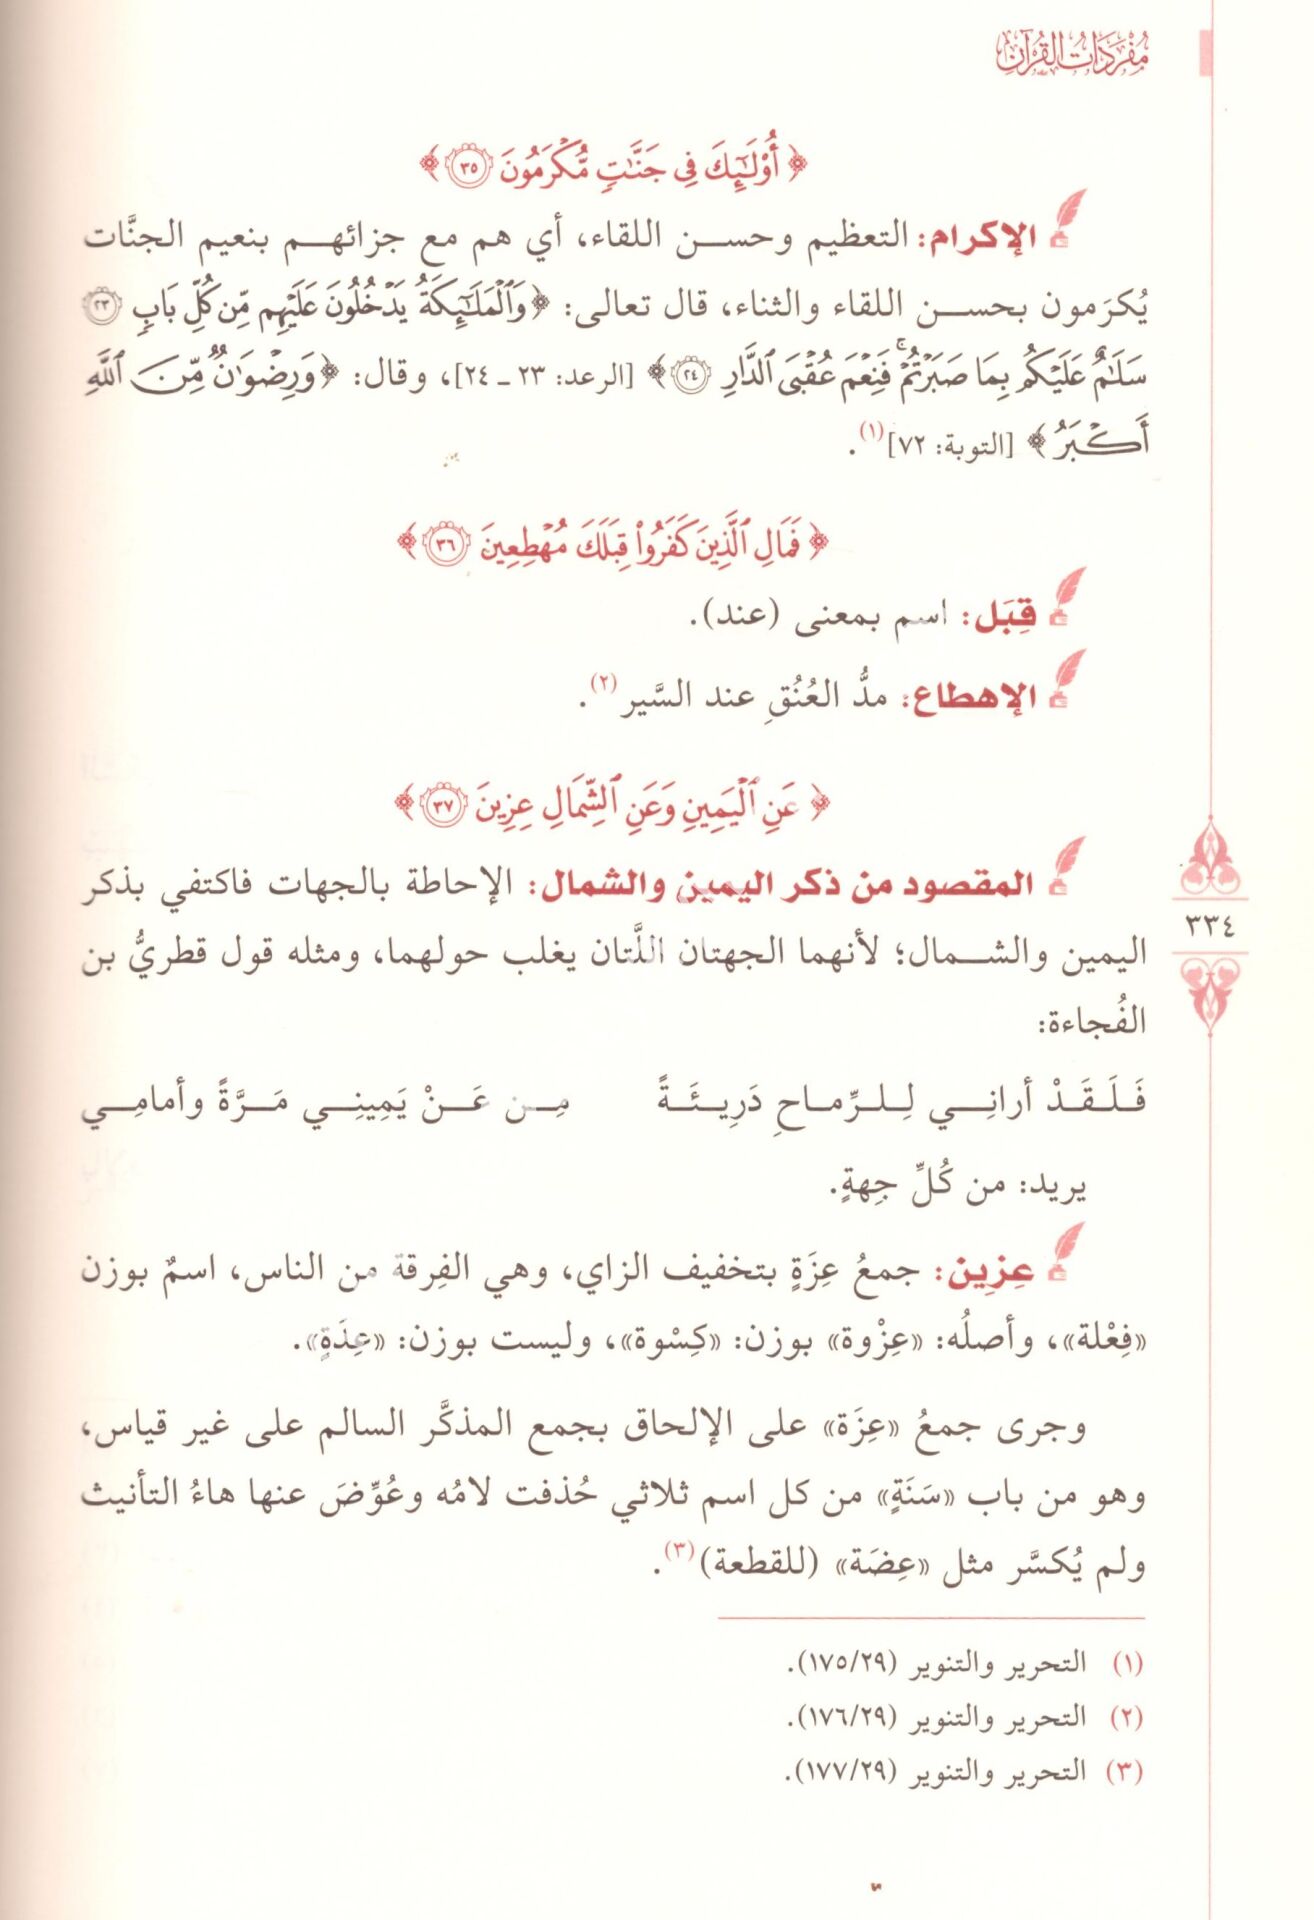 مُفْرَدَاتُ القُرْآنِ
﴿أُوْلَـٰٓئِكَ فِي جَنَّـٰتٖ مُّكۡرَمُونَ ٣٥﴾
الإكرام: التعظيم وحسن اللقاء، أي هم مع جزائهم بنعيم الجنَّات
يُكرَمون بحسن اللقاء والثناء، قال تعالى: ﴿وَٱلۡمَلَـٰٓئِكَةُ يَدۡخُلُونَ عَلَيۡهِم مِّن كُلِّ بَابٖ ٢٣
سَلَـٰمٌ عَلَيۡكُم بِمَا صَبَرۡتُمۡۚ فَنِعۡمَ عُقۡبَى ٱلدَّارِ ٢٤﴾ [الرعد: ٢٣ ـ ٢٤]، وقال: ﴿وَرِضۡوَٰنٞ مِّنَ ٱللَّهِ
أَكۡبَرُ﴾ [التوبة: ٧٢](١).
﴿فَمَالِ ٱلَّذِينَ كَفَرُواْ قِبَلَكَ مُهۡطِعِينَ ٣٦﴾
قِبَل: اسم بمعنى (عند).
الإهطاع: مدُّ العُنُقِ عند السَّير(٢).
﴿عَنِ ٱلۡيَمِينِ وَعَنِ ٱلشِّمَالِ عِزِينَ ٣٧﴾
المقصود من ذكر اليمين والشمال: الإحاطة بالجهات فاكتفي بذكر
اليمين والشمال؛ لأنهما الجهتان اللَّتان يغلب حولهما، ومثله قول قطريُّ بن
الفُجاءة:
فَلَقَدْ أرانِي لِلرِّماحِ دَرِيئَةً مِن عَنْ يَمِينِي مَرَّةً وأمامِي
يريد: من كُلِّ جِهةٍ.
عِزِين: جمعُ عِزَةٍ بتخفيف الزاي، وهي الفِرقة من الناس، اسمٌ بوزن
«فِعْلة»، وأصلُه: «عِزْوة» بوزن: «كِسْوة»، وليست بوزن: «عِدَةٍ».
وجرى جمعُ «عِزَة» على الإلحاق بجمع المذكَّر السالم على غير قياس،
وهو من باب «سَنَةٍ» من كل اسم ثلاثي حُذفت لامُه وعُوِّضَ عنها هاءُ التأنيث
ولم يُكسَّر مثل «عِضَة» (للقطعة)(٣).
(١) التحرير والتنوير (١٧٥/٢٩).
(٢) التحرير والتنوير (١٧٦/٢٩).
(٣) التحرير والتنوير (١٧٧/٢٩).
٣٣٤